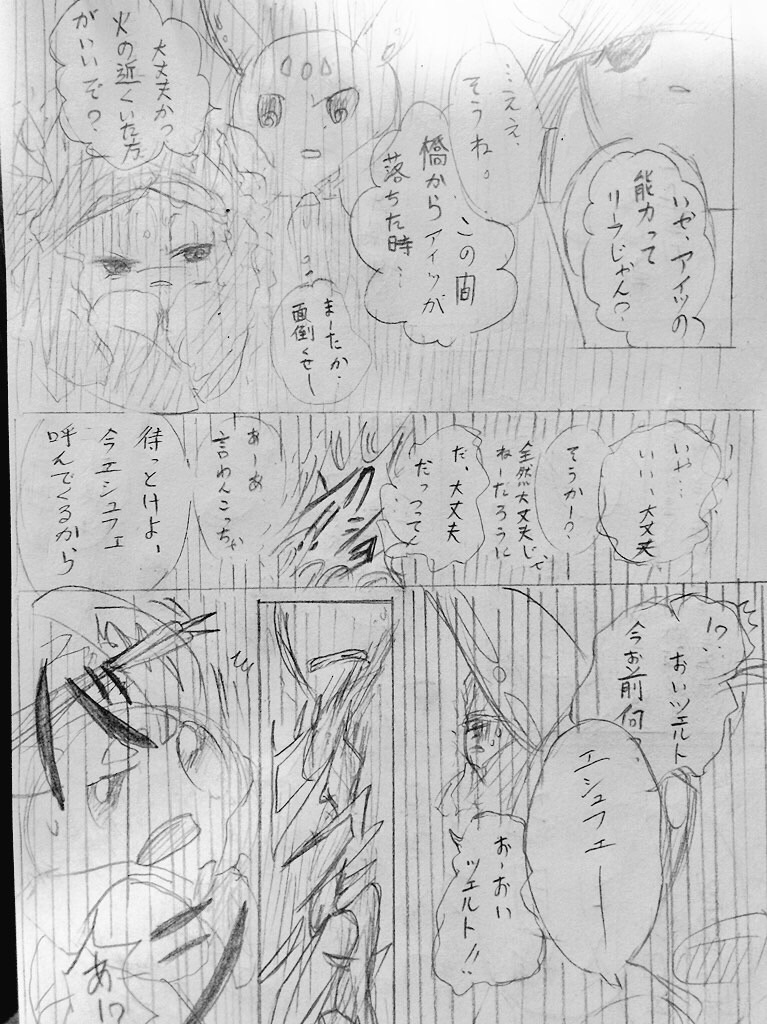 いや、アイツの
能力って
リーフじゃん?
…ええ、
そうね。
この間
橋からアイツが
落ちた時…
まーたか、
面倒くせー
大丈夫かっ
火の近くいた方
がいいぞ?
いや…
いい、大丈夫
そうかー?
全然大丈夫じゃ
ねーだろうに
だ、大丈夫
だっつって
あーあ
言わんこっちゃ
待っとけよ、
今エシュフェ
呼んでくるから
!?
おいツェルト
今お前何っ
エシュフェー
おーおい
ツェルト!!
あ!?